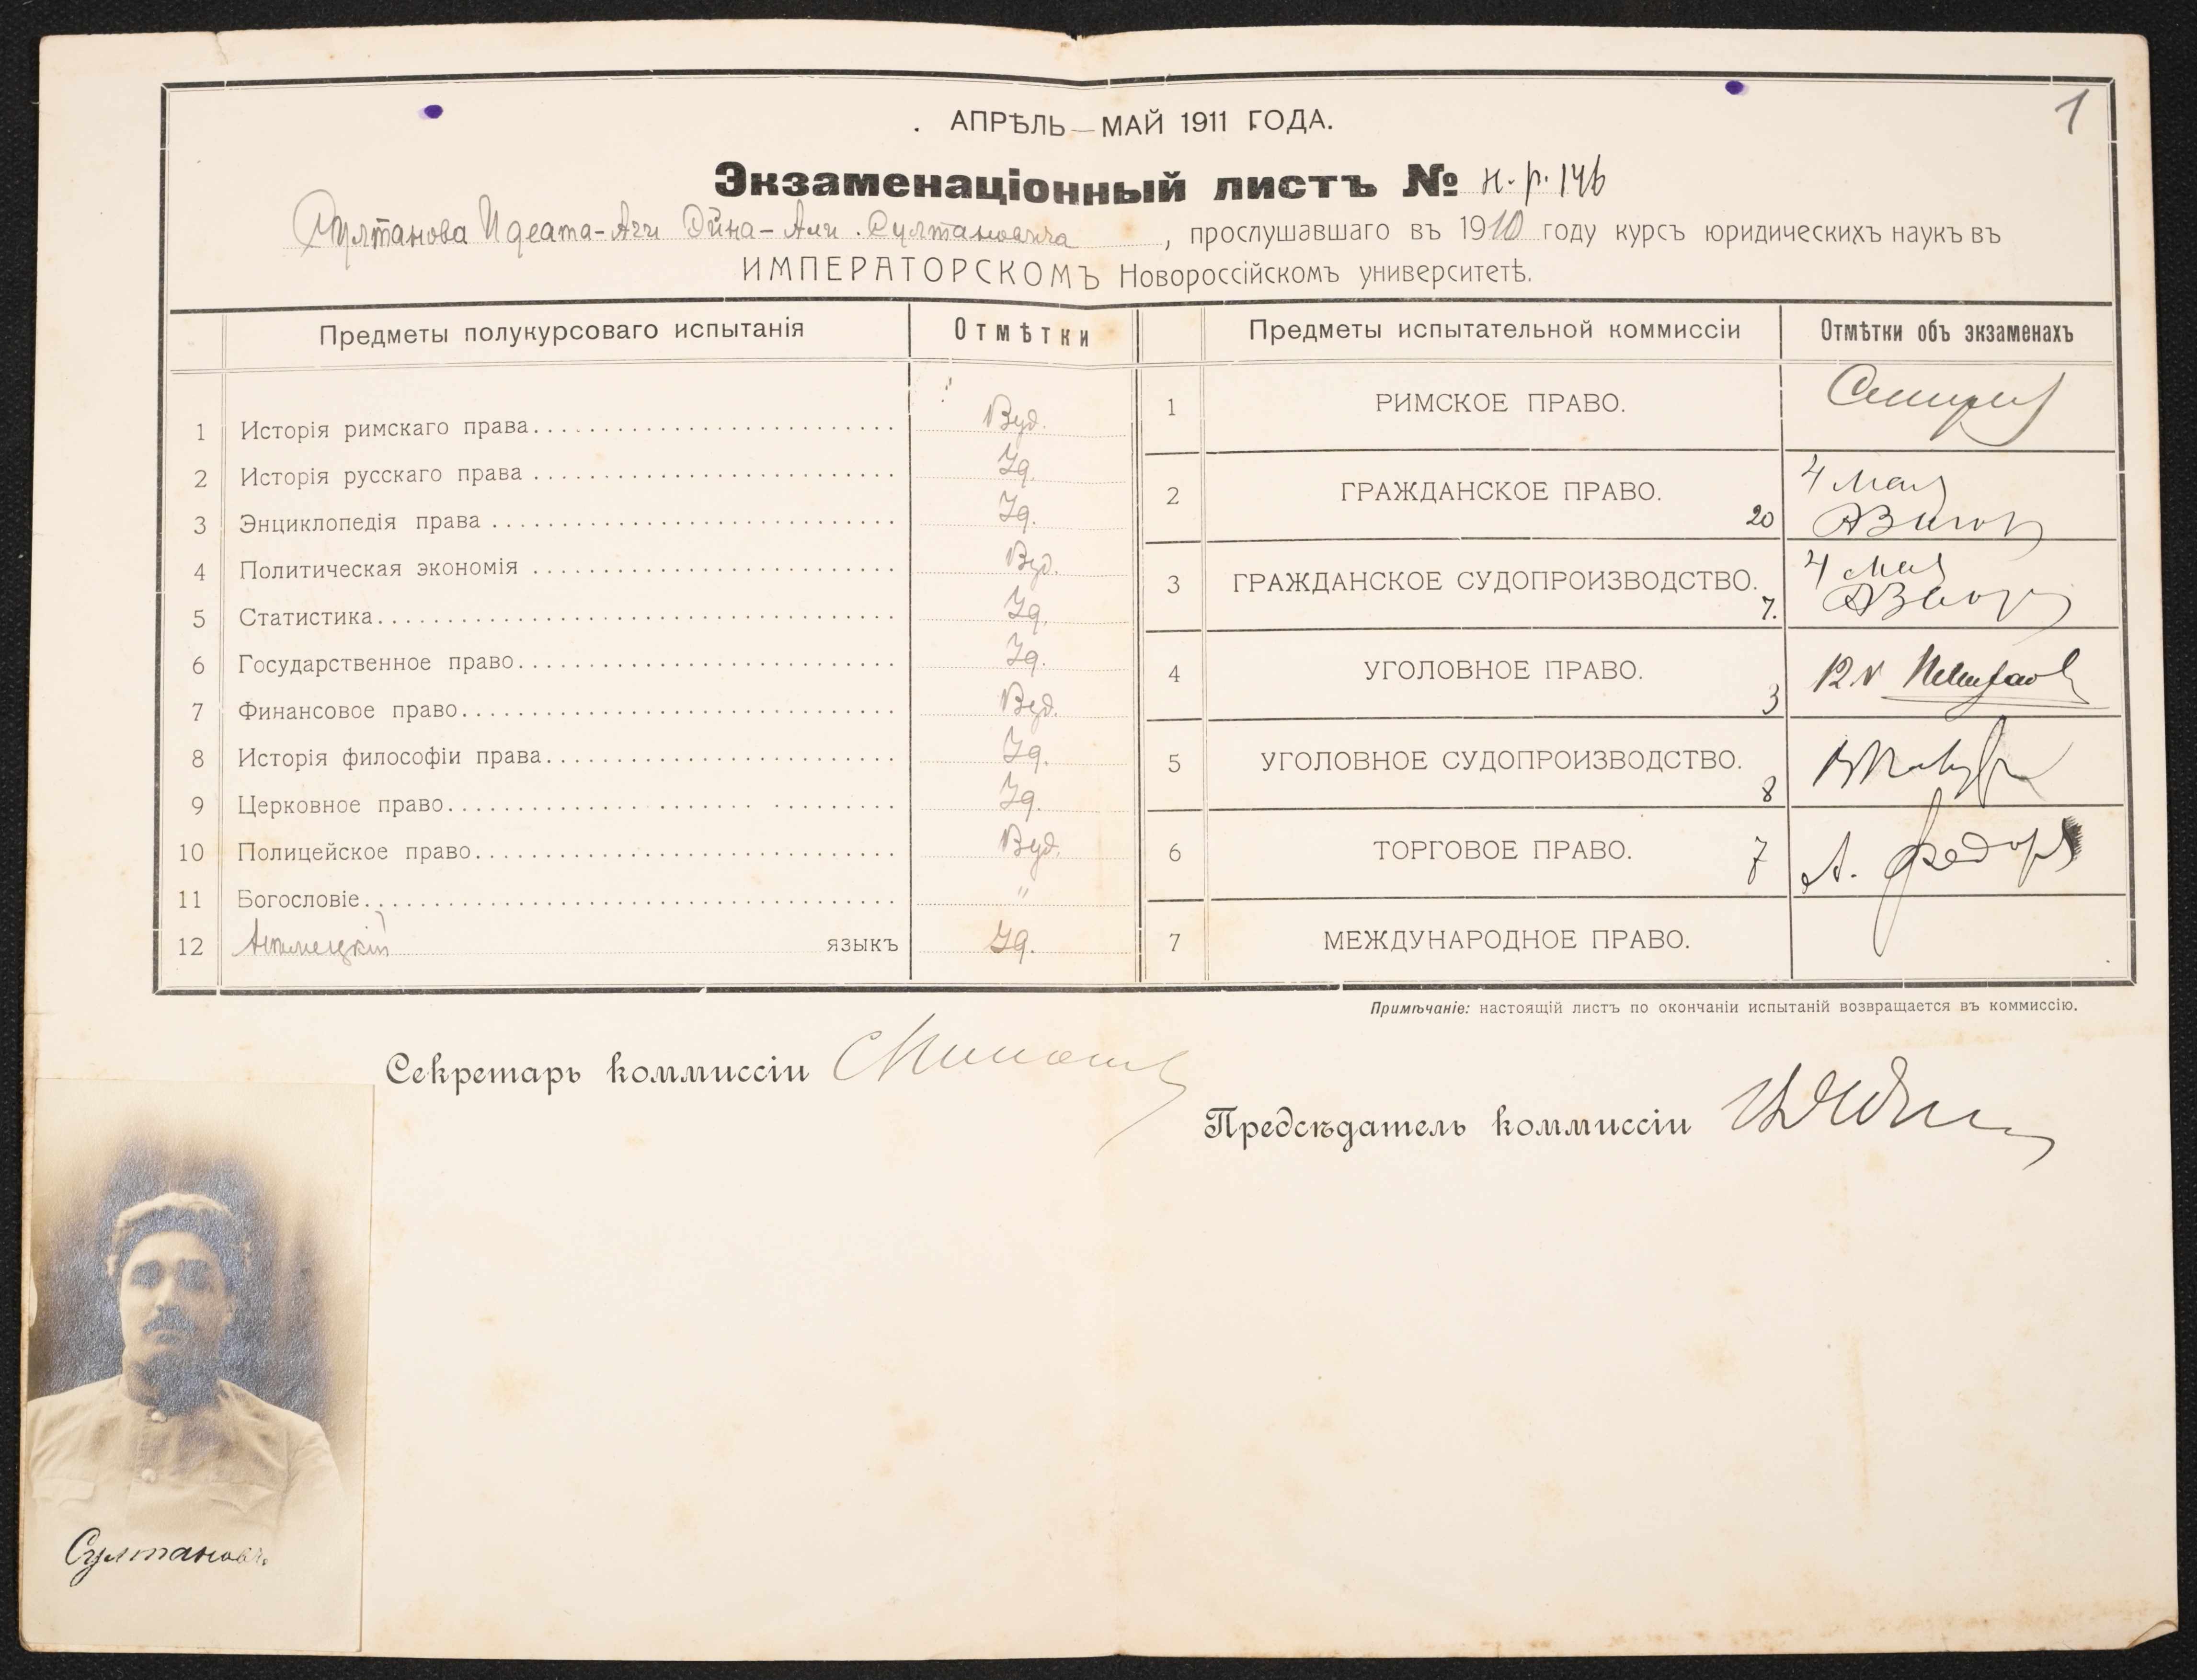 1
АПРѢЛЬ — МАЙ 1911 ГОДА.
Экзаменаціонный листъ № н. р. 146
Султанова Идеата-Аги Эйна-Али Султановича, прослушавшаго въ 1910 году курсъ юридическихъ наукъ въ
ИМПЕРАТОРСКОМЪ Новороссійскомъ университетѣ.
Предметы полукурсоваго испытанія Отмѣтки
1 Исторія римскаго права Вуд.
2 Исторія русскаго права Уд.
3 Энциклопедія права Уд.
4 Политическая экономія Вуд.
5 Статистика Уд.
6 Государственное право Уд.
7 Финансовое право Вуд.
8 Исторія философіи права Уд.
9 Церковное право Уд.
10 Полицейское право Вуд.
11 Богословіе "
12 Нѣмецкій языкъ Уд.
Предметы испытательной коммиссіи Отмѣтки объ экзаменахъ
1 РИМСКОЕ ПРАВО.
2 ГРАЖДАНСКОЕ ПРАВО. 20 4 мая
3 ГРАЖДАНСКОЕ СУДОПРОИЗВОДСТВО. 7. 4 мая
4 УГОЛОВНОЕ ПРАВО. 3 12 V
5 УГОЛОВНОЕ СУДОПРОИЗВОДСТВО. 8
6 ТОРГОВОЕ ПРАВО. 7 А. Федоровъ
7 МЕЖДУНАРОДНОЕ ПРАВО.
Примѣчаніе: настоящій листъ по окончаніи испытаній возвращается въ коммиссію.
Секретарь коммиссіи
Предсѣдатель коммиссіи
Султановъ.